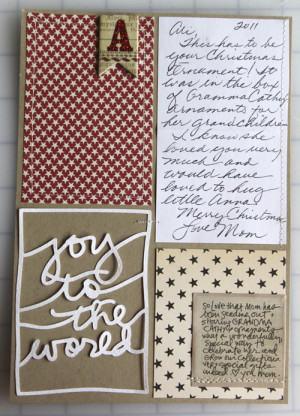 A
Ali, 2011
This has to be
your Christmas
Ornament! It
was in the box
of Gramma Cathy
ornaments for
her grandchildren
I know she
loved you very
much and
would have
loved to hug
little Anna.
Merry Christmas
Love Mom
joy
to
the
world
so love that Mom has
been sending out +
sharing GRANDMA
CATHY ornaments.
what a wonderfully
special way to
celebrate her and
grow our collection
very special gifts
indeed. ♡ you mom.